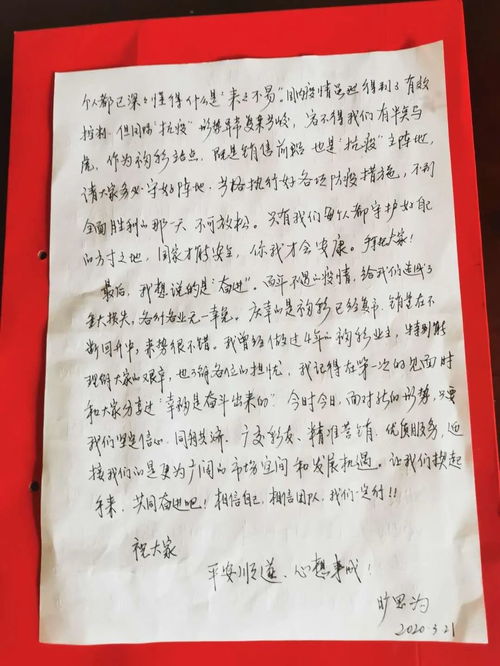 个人都已深深懂得什么是“来之不易”。国内疫情虽然得到了有效
控制,但国际“抗疫”形势异常复杂严峻,容不得我们有半点马
虎,作为福彩站点,既是销售前沿也是“抗疫”主阵地,
请大家务必守好阵地,严格执行好各项防疫措施,不到
全面胜利的那一天不可放松。只有我们每个人都守护好自己
的方寸之地,国家才能安全,你我才会安康。拜托大家!
最后,我想说的是“奋进”。百年不遇的疫情,给我们造成了
重大损失,各行各业无一幸免。庆幸的是福彩已经复市,销量在不
断回升中,来势很不错。我曾经做过4年的福彩业主,特别能
理解大家的艰辛,也了解各位的担忧,我记得在第一次的见面时
和大家分享过“幸福是奋斗出来的”今时今日,面对新的形势,只要
我们坚定信心、同舟共济、广交彩友、精准营销、优质服务,迎
接我们的是更为广阔的市场空间和发展机遇。让我们撸起
手来,共同奋进吧!相信自己,相信团队,我们一定行!!
祝大家
平安顺遂、心想事成!
旷思为
2020.3.21